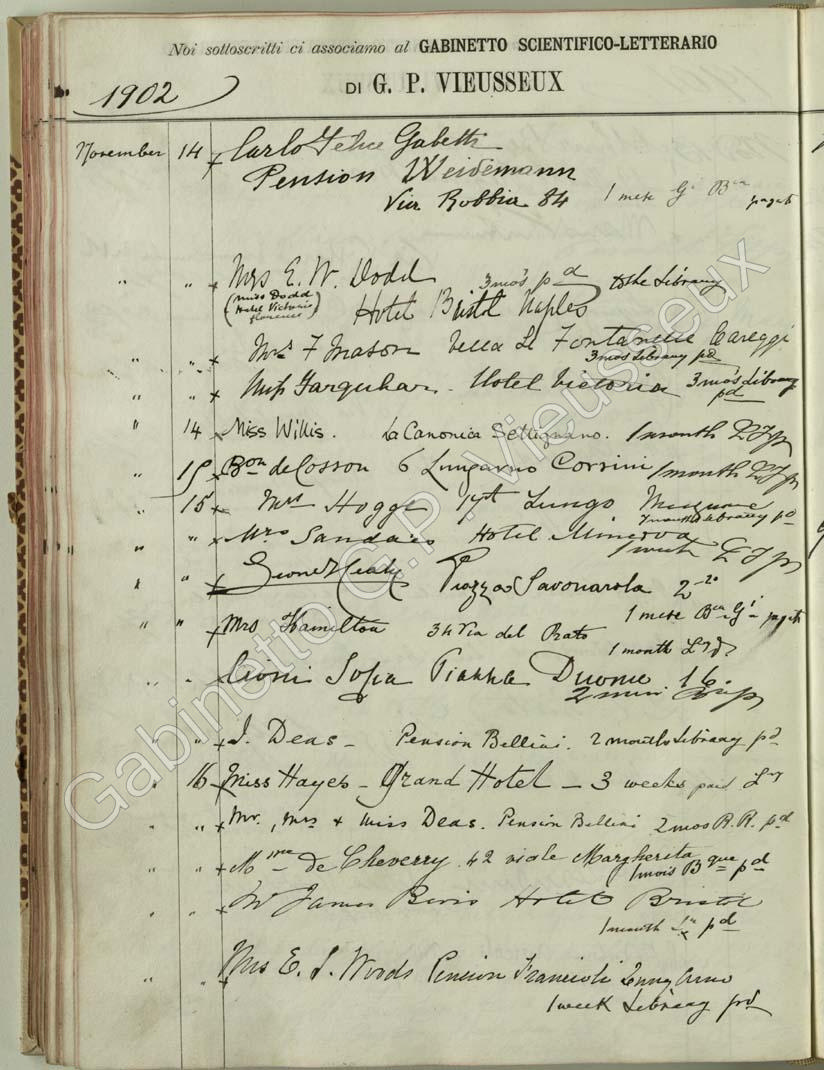 Noi sottoscritti ci associamo al GABINETTO SCIENTIFICO-LETTERARIO
DI G. P. VIEUSSEUX
1902
November 14 x Carlo Felice Gabetti
Pension Weidemann
Via Robbia 84 1 mese Gi Ben pagato
" " x Mrs E. W. Dodd 3 mo's pd to the Library
(Miss Dodd Hotel Victoria Florence) Hotel Bristol Naples
" " x Mrs F Mason Villa Le Fontanelle Careggi
3 mos Library pd
" " x Miss Farquhar - Hotel Victoria 3 mo's Library
pd
" 14 x Miss Willis. La Canonica Settignano. 1 month
" 15 x Bon de Cosson 6 Lungarno Corsini 1 month
" 15 x Mrs Hogge Lungo Mugnone
Library pd
" " x Mrs Hotel Minerva
1 week
" " x Piazza Savonarola 2
1 mese
" " x Mrs Hamilton 34 Via del Prato
1 month
" " Cioni Sofia Piazza Duomo 16.
2 mesi
" " x J. Deas - Pension Bellini. 2 months Library pd
" 16 x Miss Hayes - Grand Hotel - 3 weeks paid
" " x Mr., Mrs + Miss Deas. Pension Bellini 2 mos R. R. pd
" " x Mme de Cheverry 42 viale Margherita
1 mois Bque pd
" " x James Hotel Bristol
1 month pd
" " Mrs E. J. Woods Pension Francioli Lung'Arno
1 week Library pd
Gabinetto G.P. Vieusseux